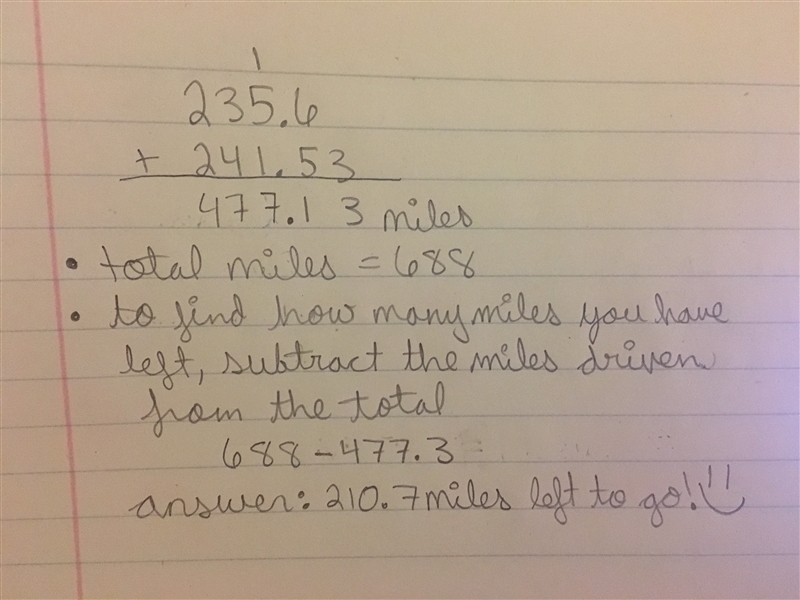 1
235.6
+ 241.53
477.13 miles
• total miles = 688
• to find how many miles you have
left, subtract the miles driven
from the total
688 - 477.3
answer: 210.7 miles left to go!